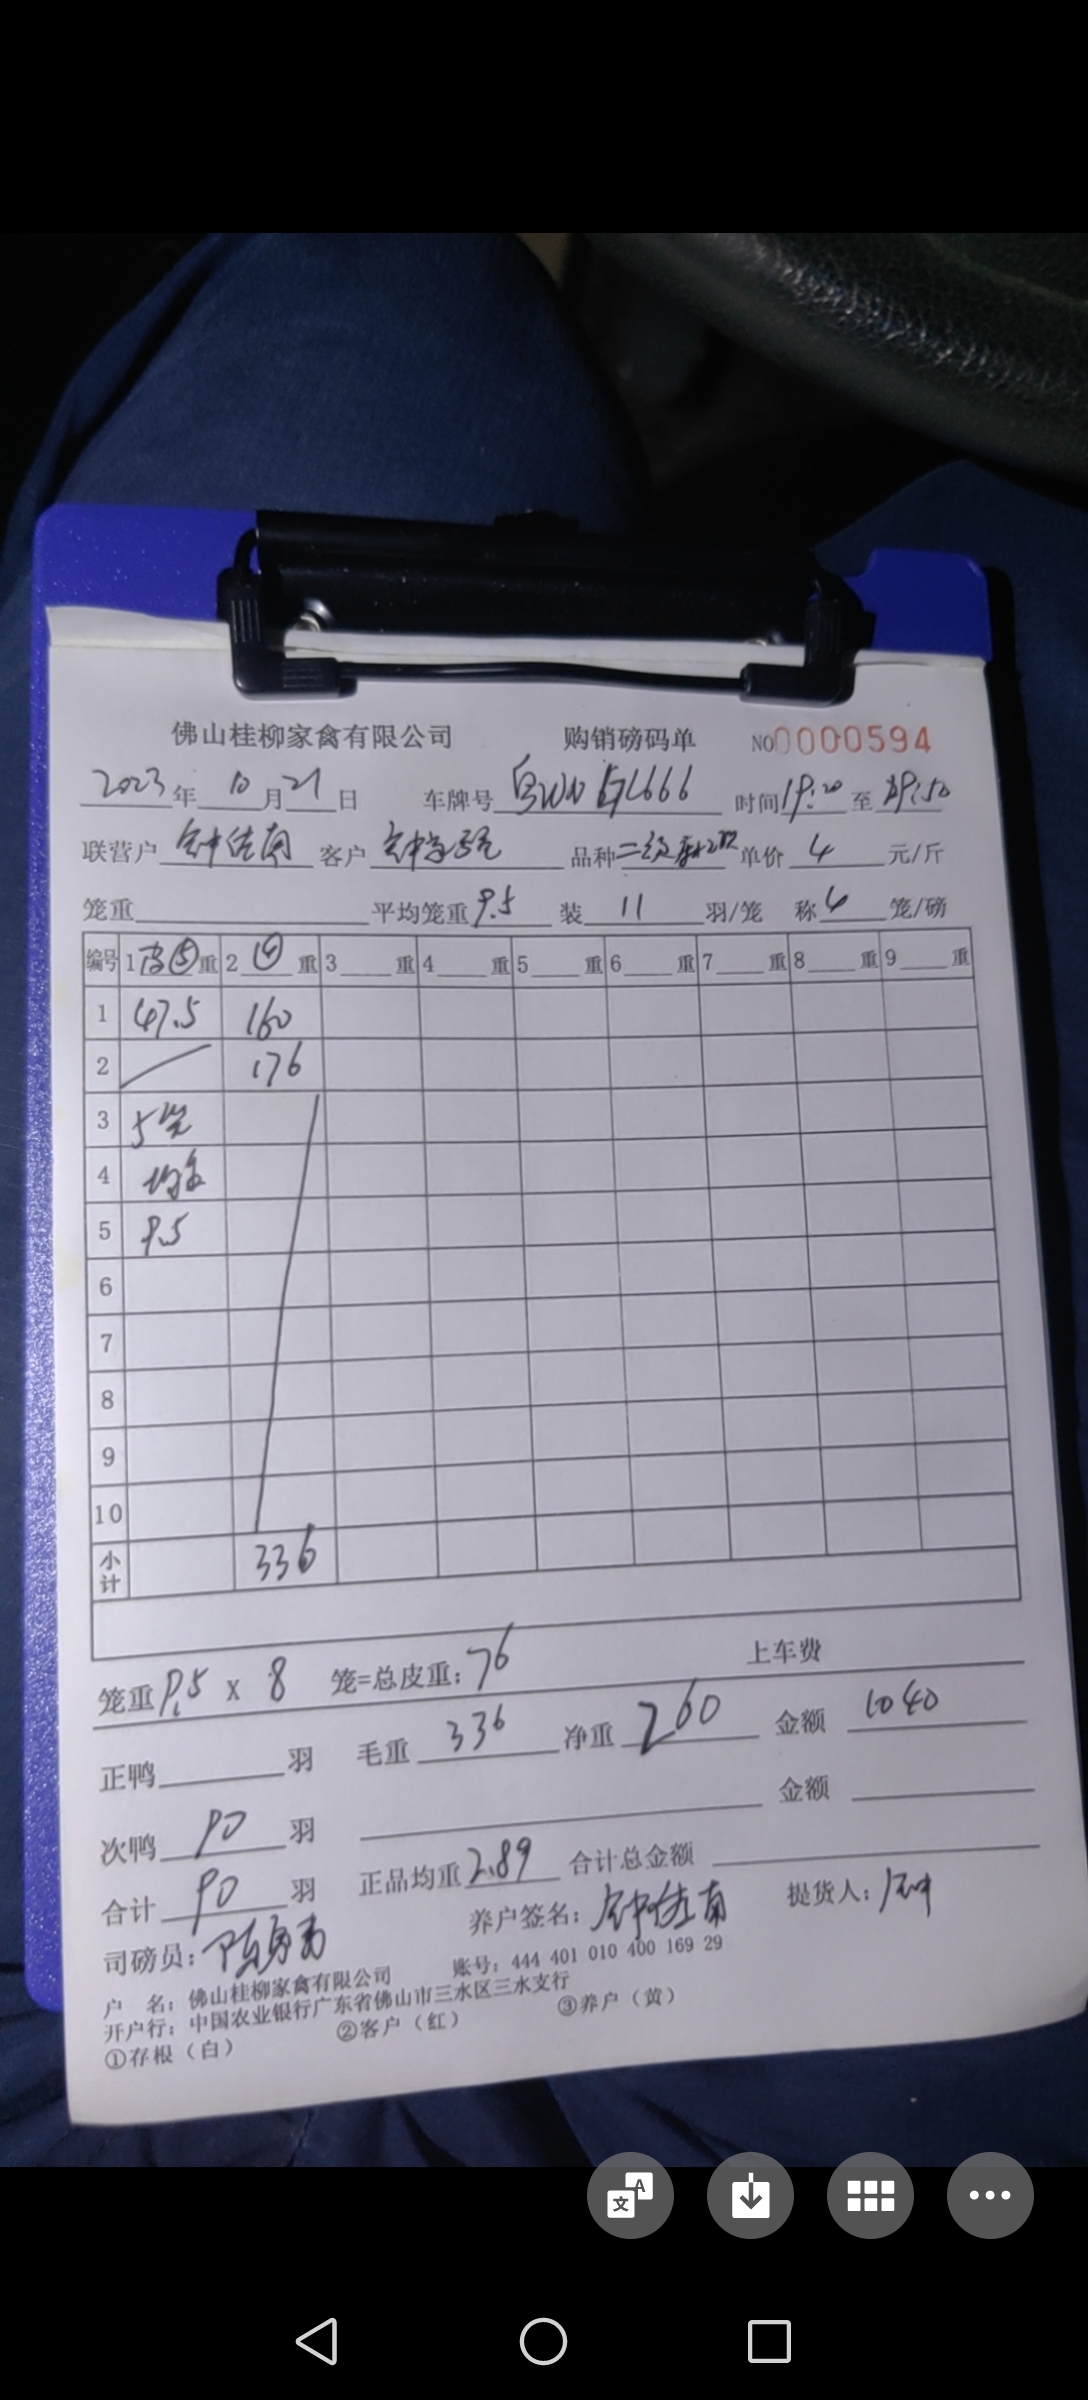 佛山桂柳家禽有限公司 购销磅码单 NO0000594
2023年10月21日 车牌号 L666 时间19:20至19:50
联营户 钟佐南 客户 品种 二级 单价 4 元/斤
笼重 平均笼重 9.5 装 11 羽/笼 称 4 笼/磅
编号 1 皮⑤重 2 ④ 重 3 重 4 重 5 重 6 重 7 重 8 重 9 重
1 47.5 160
2 176
3 5笼
4 均重
5 9.5
6
7
8
9
10
小计 336
笼重 9.5 x 8 笼=总皮重: 76 上车费
正鸭 羽 毛重 336 净重 260 金额 1040
次鸭 90 羽 金额
合计 90 羽 正品均重 2.89 合计总金额
司磅员: 养户签名: 钟佐南 提货人: 钟
户 名: 佛山桂柳家禽有限公司 账号: 444 401 010 400 169 29
开户行: 中国农业银行广东省佛山市三水区三水支行
①存根(白) ②客户(红) ③养户(黄)